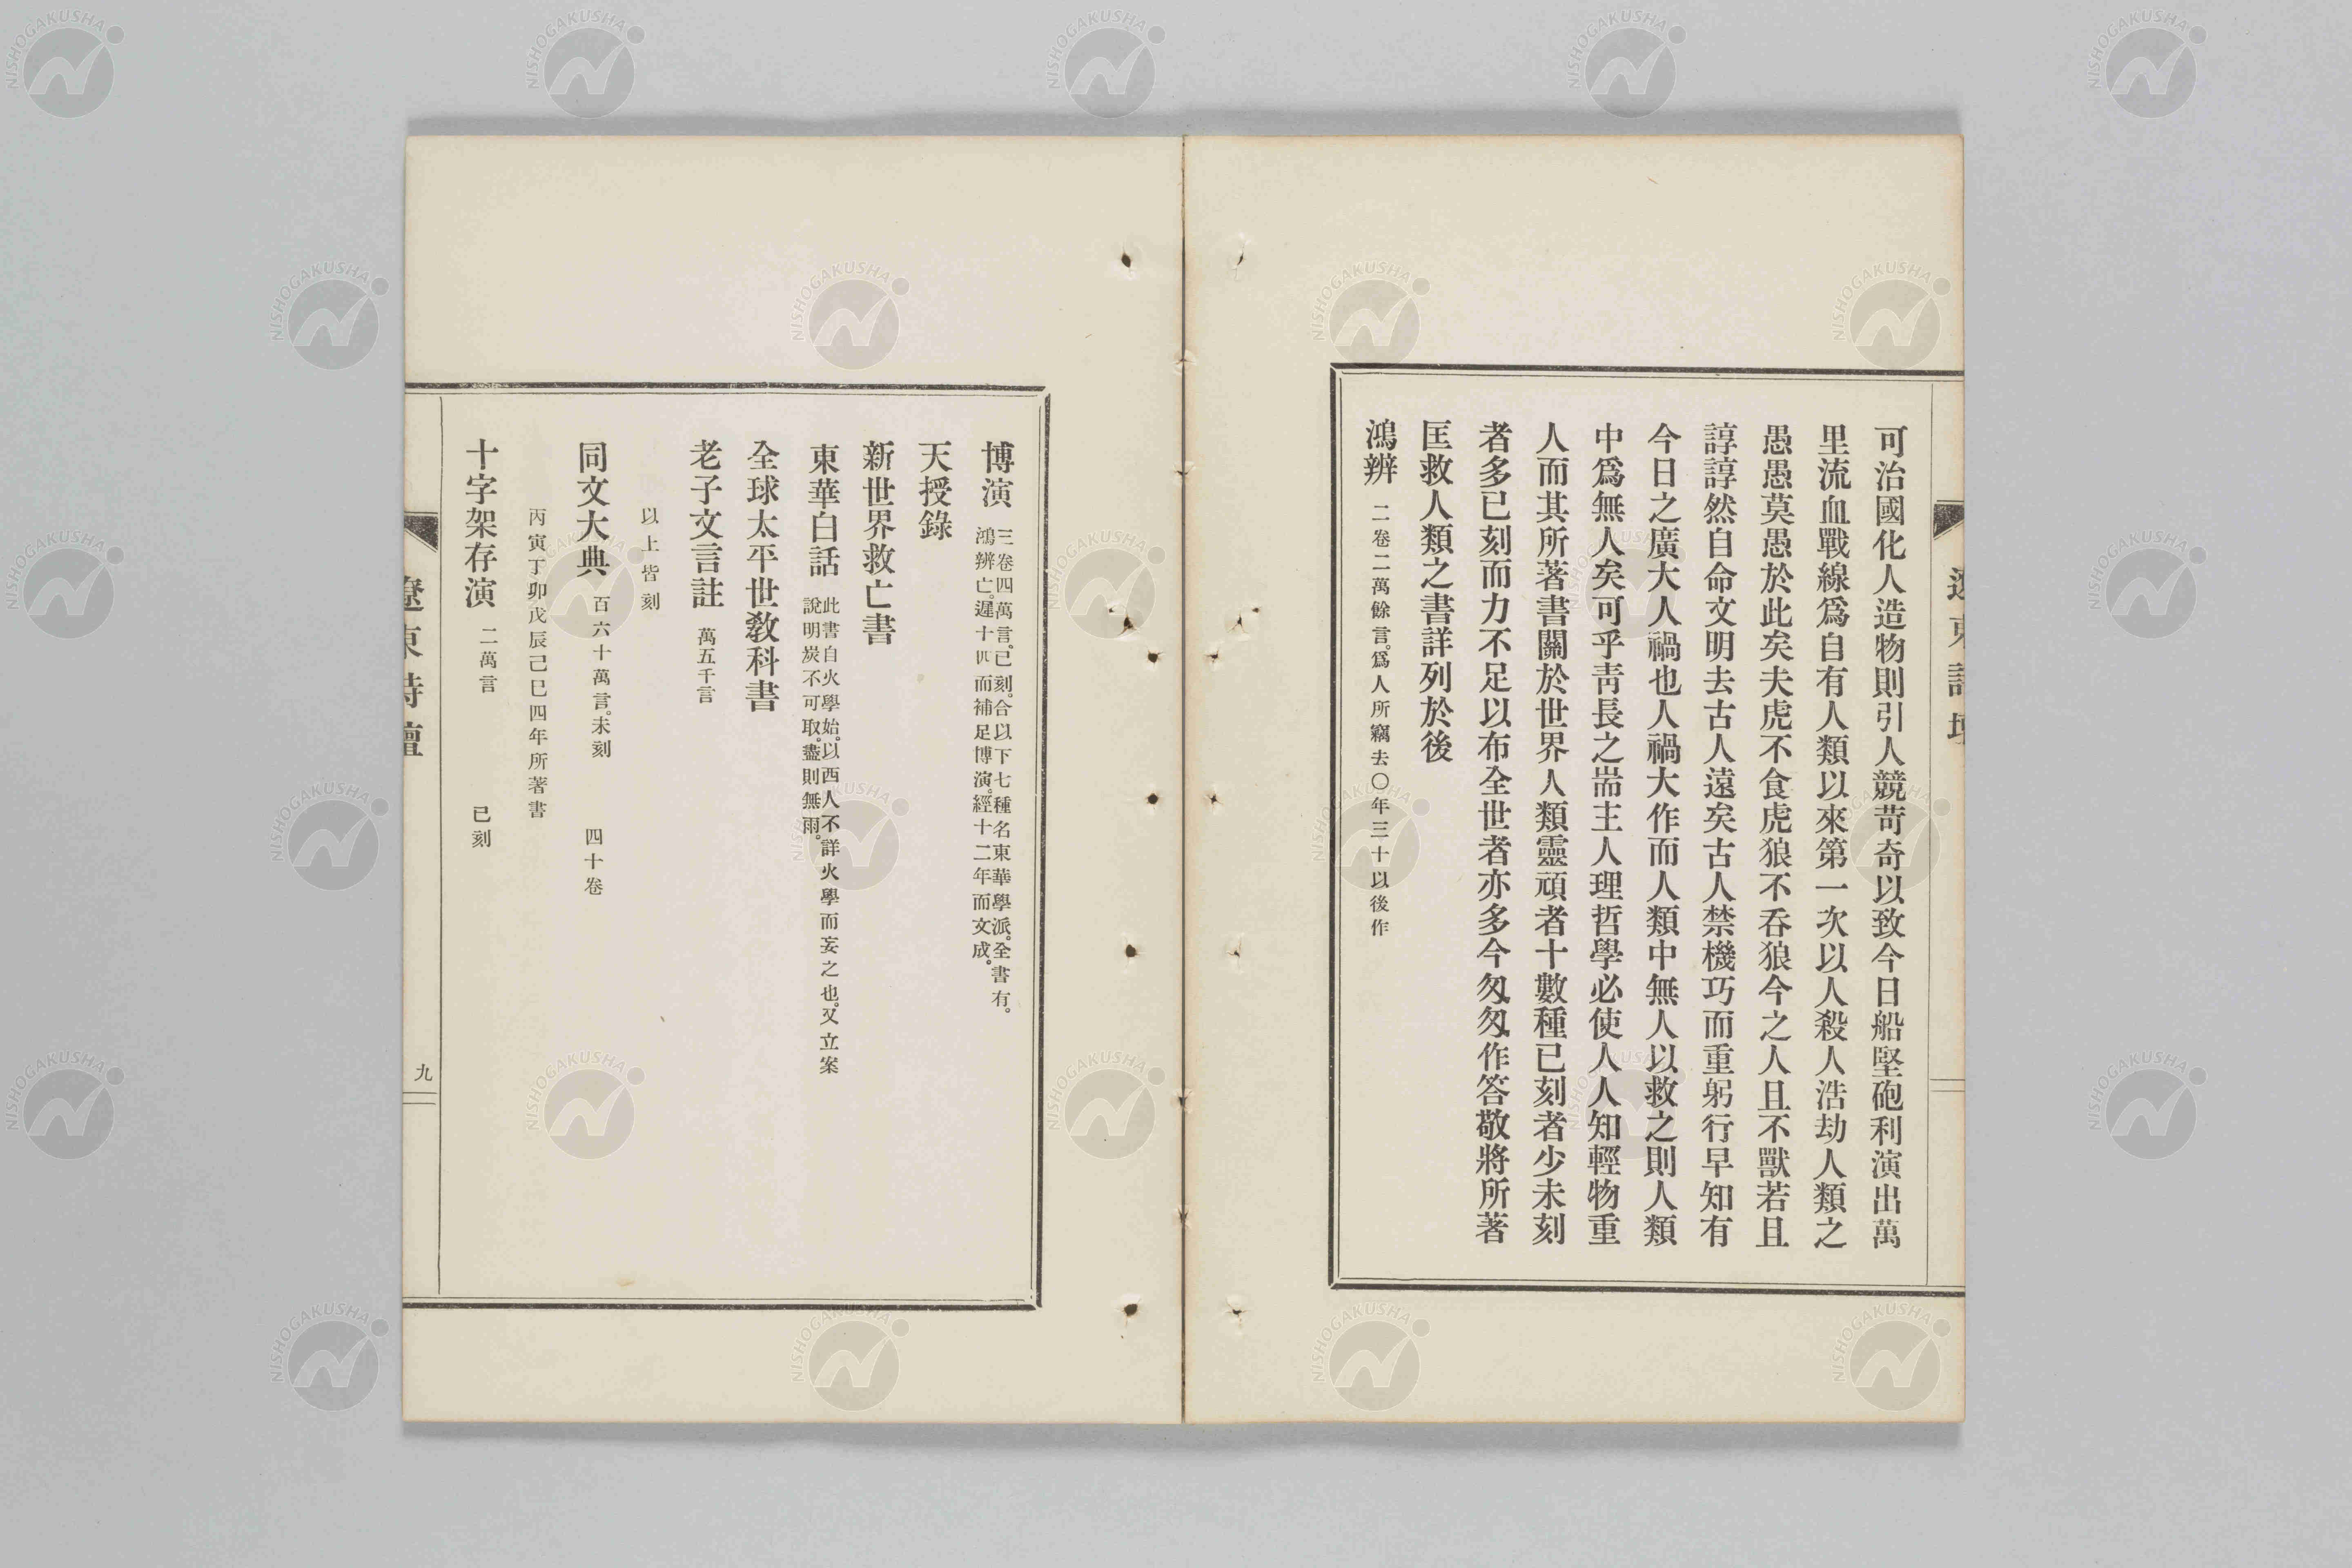 可治國化人造物則引人競苛奇以致今日船堅砲利演出萬
里流血戰線爲自有人類以來第一次以人殺人浩劫人類之
愚愚莫愚於此矣夫虎不食虎狼不吞狼今之人且不獸若且
諄諄然自命文明去古人遠矣古人禁機巧而重躬行早知有
今日之廣大人禍也人禍大作而人類中無人以救之則人類
中爲無人矣可乎靑長之耑主人理哲學必使人人知輕物重
人而其所著書關於世界人類靈頑者十數種已刻者少未刻
者多已刻而力不足以布全世者亦多今匆匆作答敬將所著
匡救人類之書詳列於後
鴻辨 二卷二萬餘言。爲人所竊去〇年三十以後作
博演 三卷四萬言。已刻。合以下七種名東華學派。全書有。
鴻辨亡。遲十四而補足博演。經十二年而文成。
天授錄
新世界救亡書
東華白話 此書自火學始。以西人不詳火學而妄之也。又立案
說明炭不可取。盡則無雨。
全球太平世敎科書
老子文言註 萬五千言
以上皆刻
同文大典 百六十萬言。未刻 四十卷
丙寅丁卯戊辰己巳四年所著書
十字架存演 二萬言 已刻
遼東詩壇
九
NISHOGAKUSHA